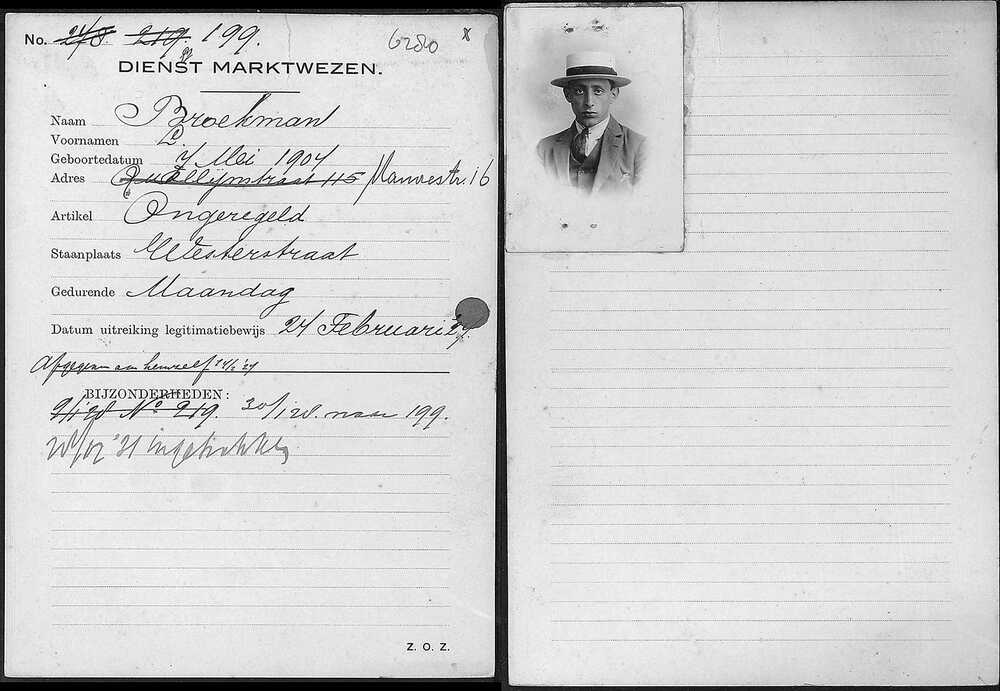 No. 248. 219. 199. 6280 x
DIENST MARKTWEZEN.
Naam Broekman
Voornamen L.
Geboortedatum 7 Mei 1904
Adres Quellijnstraat 115 Mauvestr. 16
Artikel Ongeregeld
Staanplaats Westerstraat
Gedurende Maandag
Datum uitreiking legitimatiebewijs 24 Februari 27.
Afgegeven aan hemzelf
BIJZONDERHEDEN:
No 219. 30/1 28. naar 199.
'31 ingetrokken
Z. O. Z.